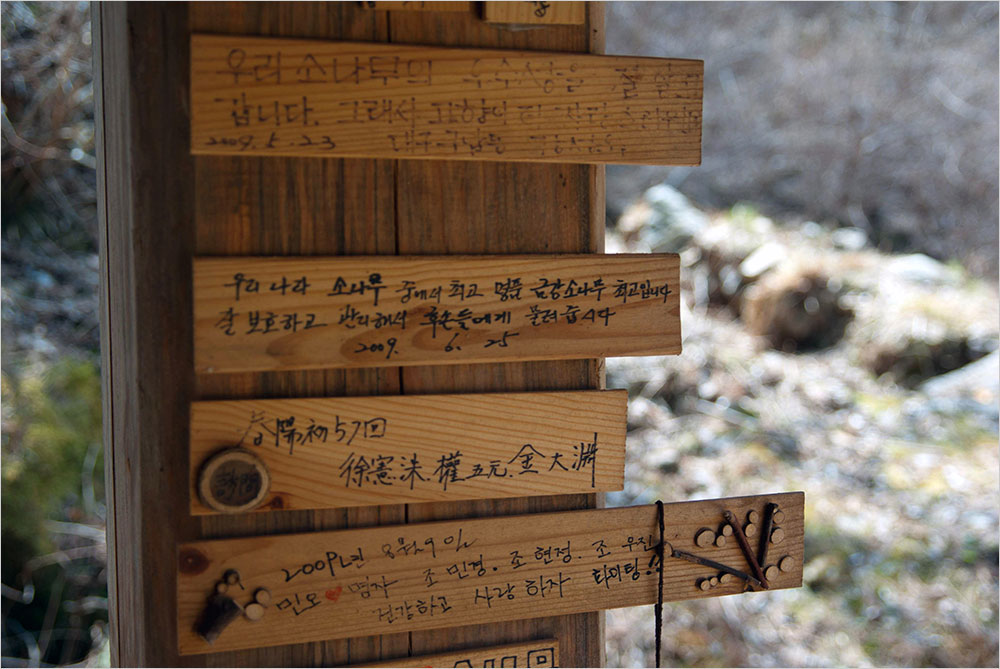 우리 소나무의 우수성을 잘 알고
갑니다. 그래서
2009. 5. 23 대구
우리 나라 소나무 중에서 최고 명품 금강소나무 최고입니다
잘 보호하고 관리해서 후손들에게 물려 줍시다
2009. 6. 25
春陽初57回
徐憲洙.權五元.金大淵
訪問
2009년 8월29일
민오♥명자 조민경.조현정.조우진
건강하고 사랑하자 화이팅!!